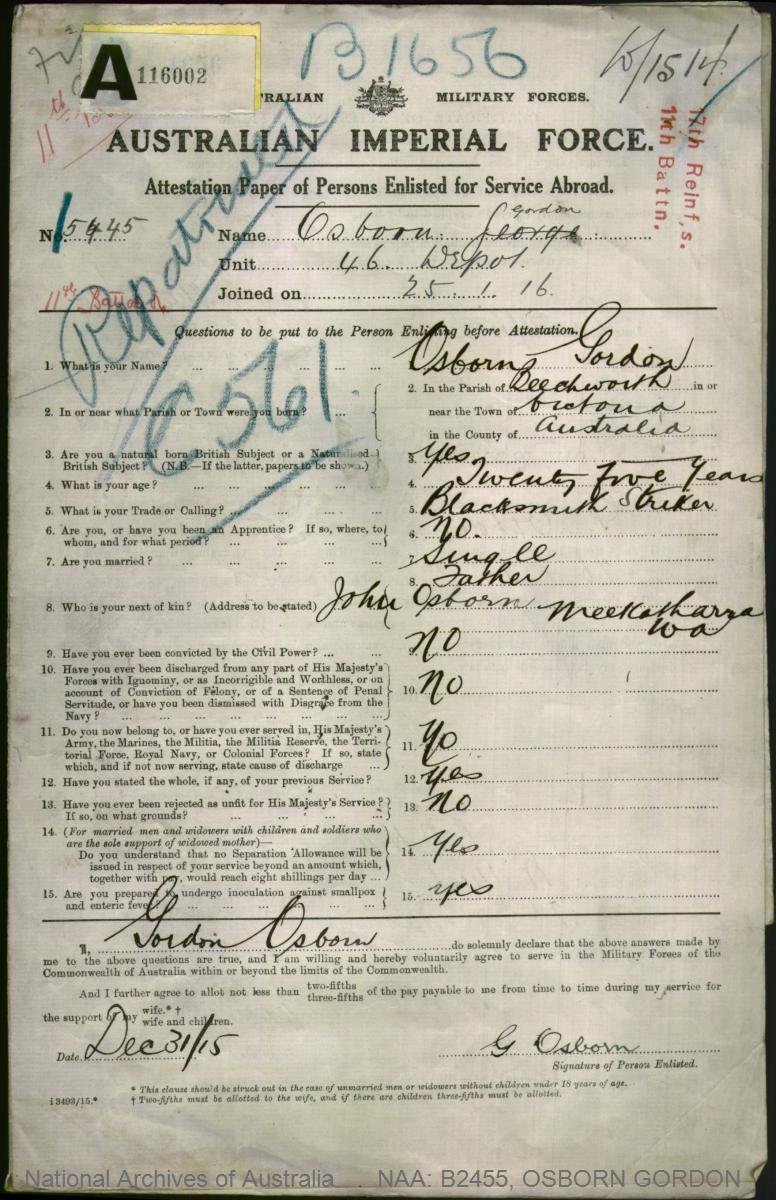 B1656
A 116002
15/1514
AUSTRALIAN MILITARY FORCES.
AUSTRALIAN IMPERIAL FORCE.
17th Reinf,s.
11th Battn.
11th
Attestation Paper of Persons Enlisted for Service Abroad.
No. 5445 Name Osborn George Gordon
Unit 46. Depot.
Joined on 25.1.16.
11th Battalion
Repatriated
C561.
Questions to be put to the Person Enlisting before Attestation.
1. What is your Name? ... Osborn, Gordon
2. In or near what Parish or Town were you born? ... 2. In the Parish of Beechworth in or
near the Town of Victoria
in the County of Australia
3. Are you a natural born British Subject or a Naturalised
British Subject? (N.B.—If the latter, papers to be shown.) 3. Yes
4. What is your age? ... 4. Twenty five Years
5. What is your Trade or Calling? ... 5. Blacksmith Striker
6. Are you, or have you been an Apprentice? If so, where, to
whom, and for what period? ... 6. No.
7. Are you married? ... 7. Single
8. Father
8. Who is your next of kin? (Address to be stated) John Osborn Meekatharra
Wa
9. Have you ever been convicted by the Civil Power? ... 9. No
10. Have you ever been discharged from any part of His Majesty's
Forces with Ignominy, or as Incorrigible and Worthless, or on
account of Conviction of Felony, or of a Sentence of Penal
Servitude, or have you been dismissed with Disgrace from the
Navy? ... 10. No
11. Do you now belong to, or have you ever served in, His Majesty's
Army, the Marines, the Militia, the Militia Reserve, the Terri-
torial Force, Royal Navy, or Colonial Forces? If so, state
which, and if not now serving, state cause of discharge ... 11. No
12. Have you stated the whole, if any, of your previous Service? 12. Yes
13. Have you ever been rejected as unfit for His Majesty's Service?
If so, on what grounds? ... 13. No
14. (For married men and widowers with children and soldiers who
are the sole support of widowed mother)—
Do you understand that no Separation Allowance will be
issued in respect of your service beyond an amount which,
together with pay, would reach eight shillings per day ... 14. Yes
15. Are you prepared to undergo inoculation against smallpox
and enteric fever? ... 15. yes
I, Gordon Osborn do solemnly declare that the above answers made by
me to the above questions are true, and I am willing and hereby voluntarily agree to serve in the Military Forces of the
Commonwealth of Australia within or beyond the limits of the Commonwealth.
And I further agree to allot not less than two-fifths three-fifths of the pay payable to me from time to time during my service for
the support of my wife.* † wife and children.
Date Dec 31/15
G Osborn
Signature of Person Enlisted.
* This clause should be struck out in the case of unmarried men or widowers without children under 18 years of age.
i 3493/15.* † Two-fifths must be allotted to the wife, and if there are children three-fifths must be allotted.
National Archives of Australia NAA: B2455, OSBORN GORDON